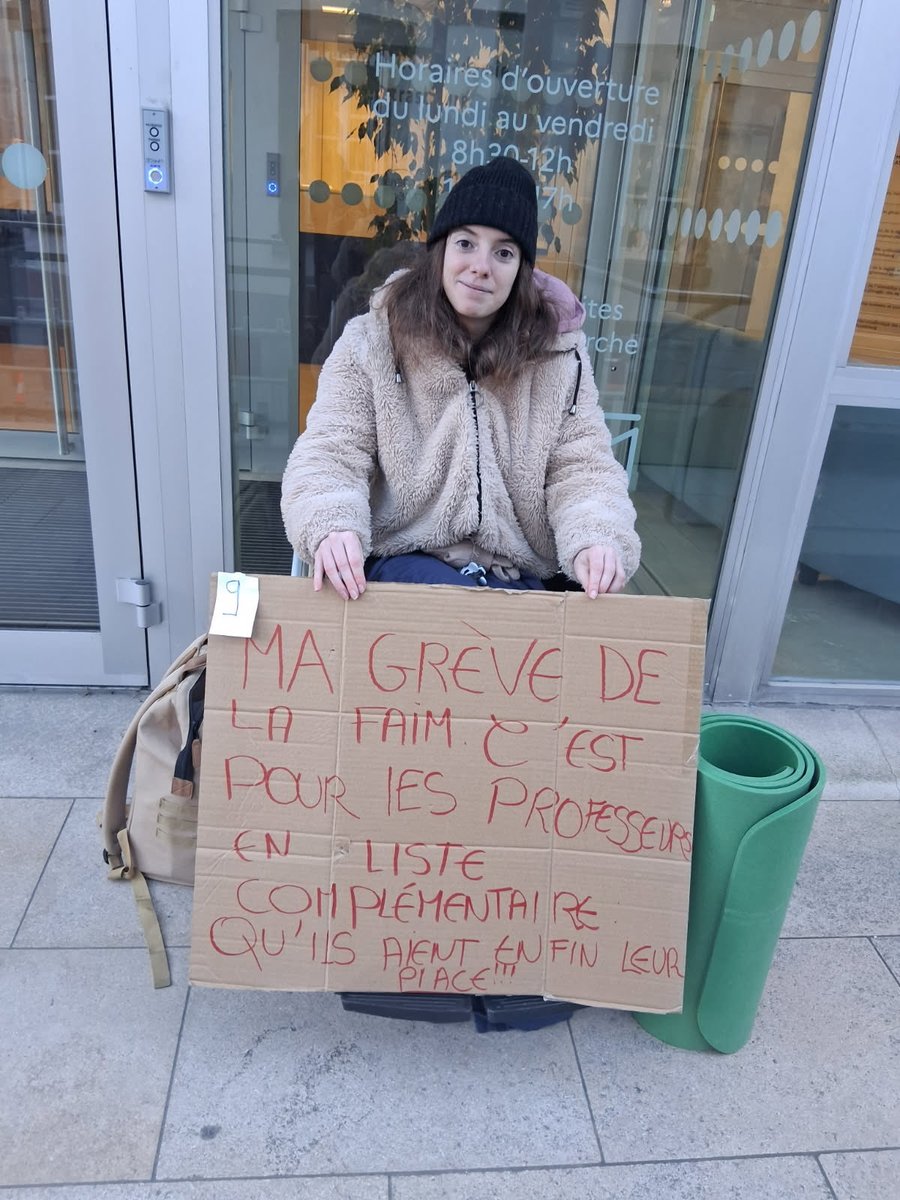 Horaires d'ouverture
du lundi au vendredi
8h30-12h
17h
L9
MA GRÈVE DE
LA FAIM C'EST
POUR LES PROFESSEURS
EN LISTE
COMPLÉMENTAIRE
QU'ILS AIENT ENFIN LEUR
PLACE!!!